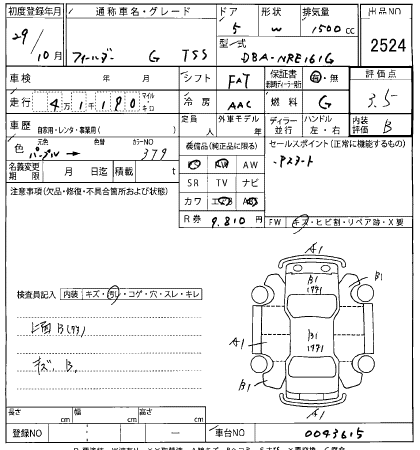 初度登録年月 通称車名・グレード ドア 形状 排気量 出品NO
29/10月 フィールダー G TSS 5 W 1500cc 2524
型式 DBA-NRE161G
車検 年 月 シフト FAT 保証書 有・無 評価点
走行 4万1千190 マイル・キロ 冷房 AAC 燃料 G 3.5
車歴 自家用・レンタ・事業用( ) 定員 人 外車モデル 年 ディーラー・並行 ハンドル 左・右 内装評価 B
色 元色 パープル→ 色替 カラーNO 379
装備品(純正品に限る) セールスポイント(正常に機能するもの)
名義変更期限 月 日迄 積載 t
AW
SR TV ナビ
カワ エアB
注意事項(欠品・修復・不具合箇所および状態)
R券 9,810円
FW キズ・ヒビ割・リペア跡・X要
A1
B1
B1
A1
B1
A1
B1
A1
検査員記入 内装 キズ・汚レ・コゲ・穴・スレ・キレ
上面B
キズ、B、
長さ cm 幅 cm 高さ cm
登録NO 車台NO 0043615